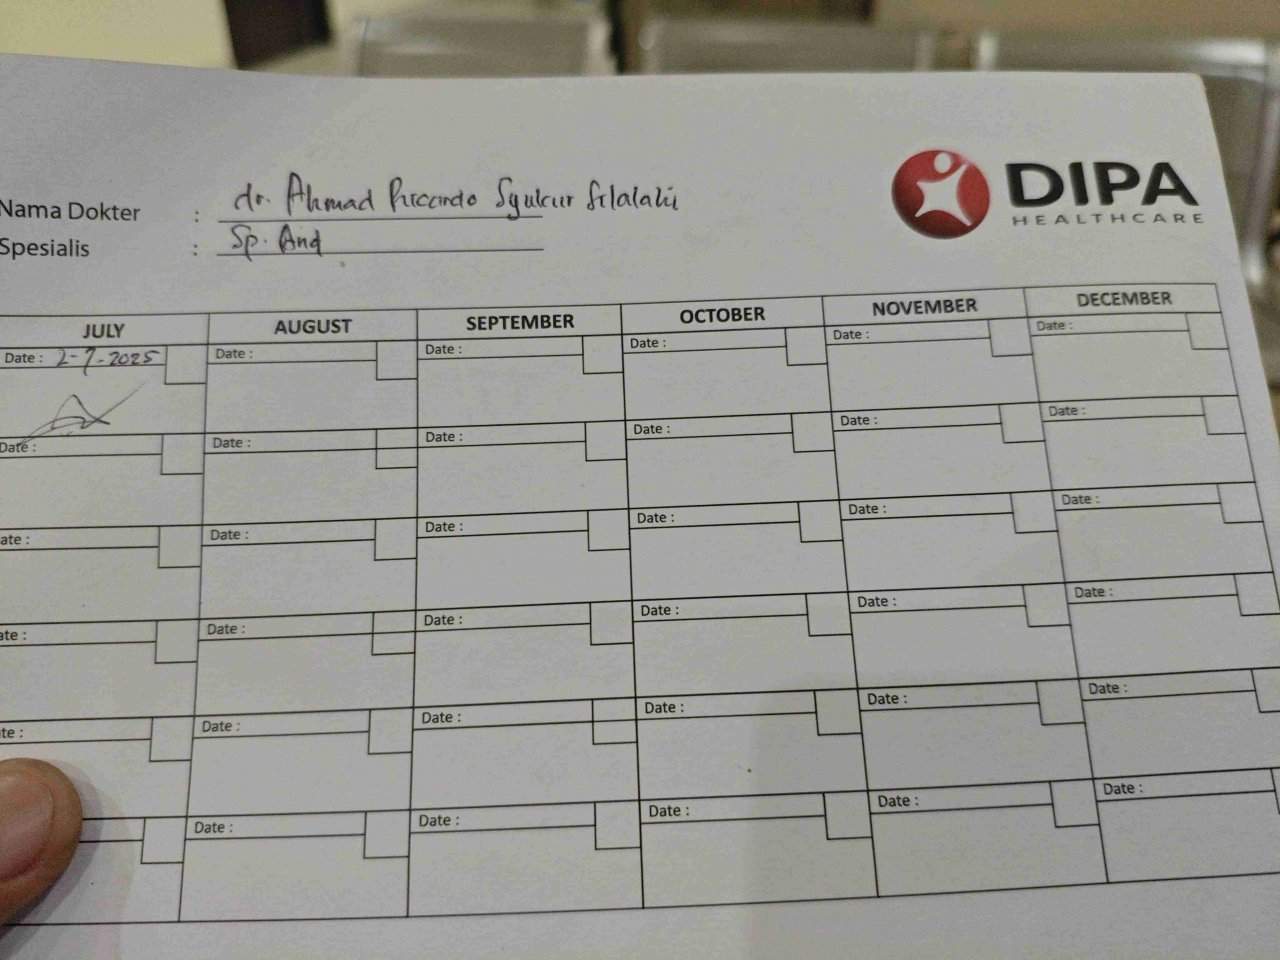 DIPA
HEALTHCARE
Nama Dokter : dr. Ahmad Riccardo Syukur Silalahi
Spesialis : Sp. And
JULY AUGUST SEPTEMBER OCTOBER NOVEMBER DECEMBER
Date : 2-7-2025 Date : Date : Date : Date : Date :
Date : Date : Date : Date : Date : Date :
ate : Date : Date : Date : Date : Date :
ate : Date : Date : Date : Date : Date :
te : Date : Date : Date : Date : Date :
Date : Date : Date : Date : Date :